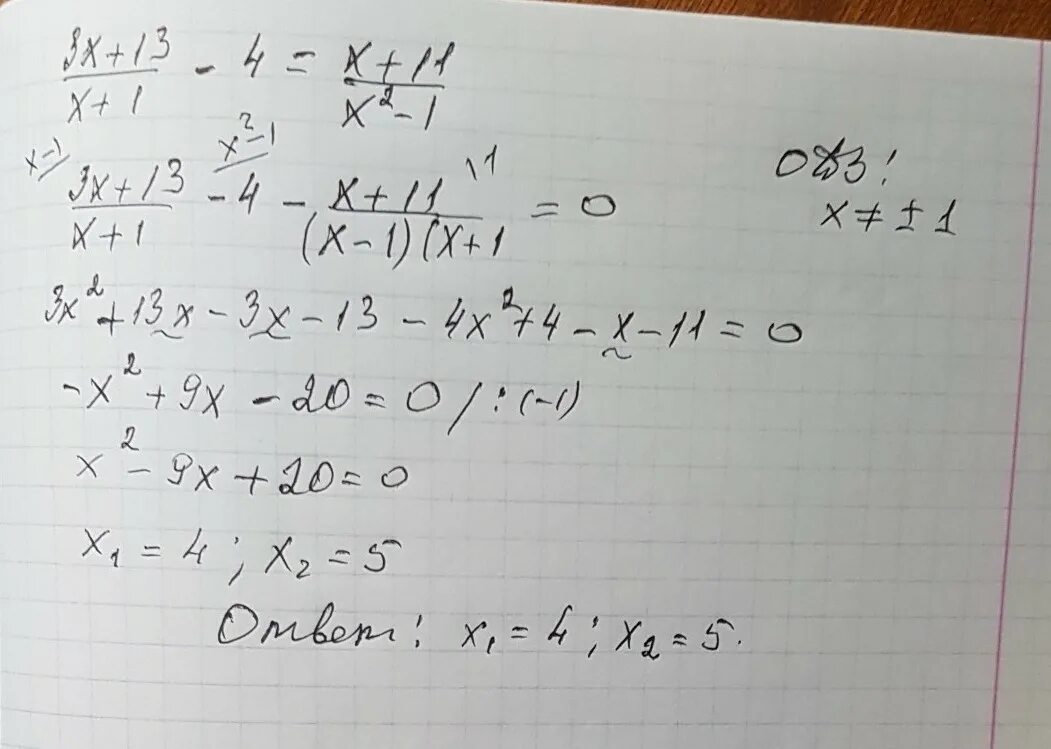 (3x+13)/(x+1) - 4 = (x+11)/(x²-1)
x-1/ (3x+13)/(x+1) x²-1/ - 4 - (x+11)/((x-1)(x+1) \1 = 0
ОДЗ:
x ≠ ± 1
3x²+13x-3x-13-4x²+4-x-11=0
-x²+9x-20=0 /:(-1)
x²-9x+20=0
x₁=4; x₂=5
Ответ: x₁=4; x₂=5.